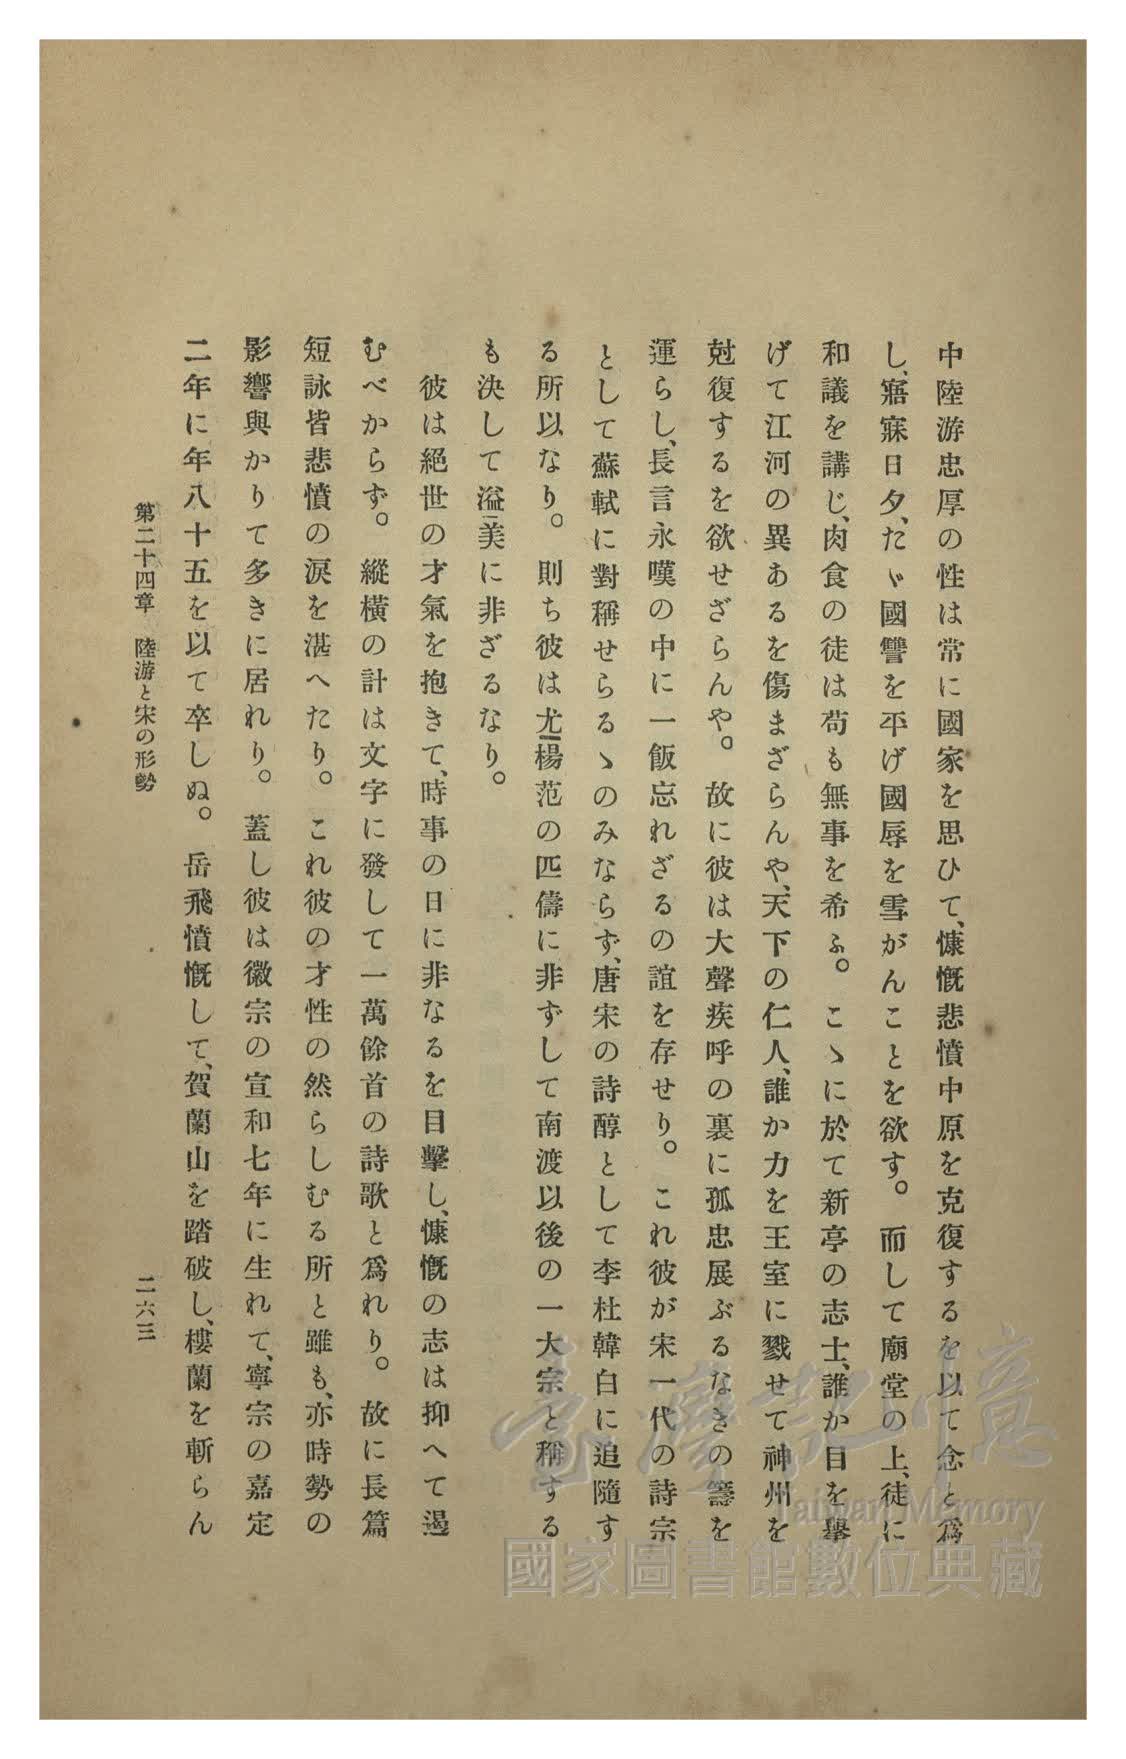 中陸游忠厚の性は常に國家を思ひて、慷慨悲憤中原を克復するを以て念と爲
し、寤寐日夕、たゞ國讐を平げ國辱を雪がんことを欲す。而して廟堂の上、徒に
和議を講じ、肉食の徒は苟も無事を希ふ。こゝに於て新亭の志士、誰か目を擧
げて江河の異あるを傷まざらんや、天下の仁人、誰か力を王室に戮せて神州を
尅復するを欲せざらんや。故に彼は大聲疾呼の裏に孤忠展ぶるなきの籌を
運らし、長言永嘆の中に一飯忘れざるの誼を存せり。これ彼が宋一代の詩宗
として蘇軾に對稱せらるゝのみならず、唐宋の詩醇として李杜韓白に追隨す
る所以なり。則ち彼は尤楊范の匹儔に非ずして南渡以後の一大宗と稱する
も決して溢美に非ざるなり。
彼は絕世の才氣を抱きて、時事の日に非なるを目擊し、慷慨の志は抑へて遏
むべからず。縱橫の計は文字に發して一萬餘首の詩歌と爲れり。故に長篇
短詠皆悲憤の淚を湛へたり。これ彼の才性の然らしむる所と雖も、亦時勢の
影響與かりて多きに居れり。蓋し彼は徽宗の宣和七年に生れて、寧宗の嘉定
二年に年八十五を以て卒しぬ。岳飛憤慨して、賀蘭山を踏破し、樓蘭を斬らん
第二十四章 陸游と宋の形勢
二六三
臺灣記憶
Taiwan Memory
國家圖書館數位典藏